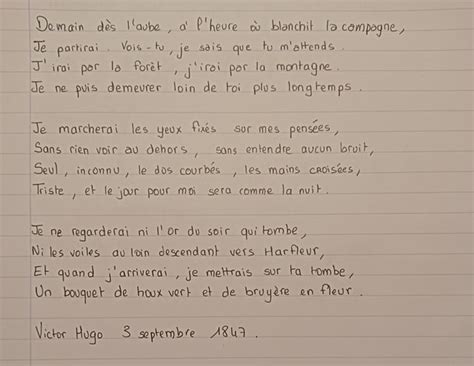 Demain dès l'aube, à l'heure où blanchit la campagne,
Je partirai. Vois-tu, je sais que tu m'attends.
J'irai par la forêt, j'irai par la montagne.
Je ne puis demeurer loin de toi plus longtemps.
Je marcherai les yeux fixés sur mes pensées,
Sans rien voir au dehors, sans entendre aucun bruit,
Seul, inconnu, le dos courbés, les mains croisées,
Triste, et le jour pour moi sera comme la nuit.
Je ne regarderai ni l'or du soir qui tombe,
Ni les voiles au loin descendant vers Harfleur,
Et quand j'arriverai, je mettrais sur ta tombe,
Un bouquet de houx vert et de bruyère en fleur.
Victor Hugo 3 septembre 1847.